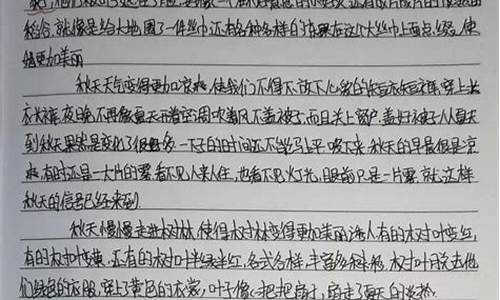 稻谷,就像是给大地围了一件丝巾还有各种各样的珠果在这个大丝巾上面点缀,使
她更加美丽
秋天天气变得更加凉爽,使我们不得不放下心爱的短衣短裤,穿上长
衣长裤,夜晚不再像夏天开着空调吹着风不盖被子,而且关上窗户,盖好被子从夏天
到秋天果然是变化了很多,一下子的时间还不能马上平 下来,秋天的早晨很是凉
爽,有时还是一大片的雾,看不见人来人往,也看不见灯光,眼前只是一片雾,就这样
秋天的信号已经来到
秋天慢慢走进树林,使得树林变得更加美丽诱人有的树叶变红,
有的树叶变黄,还有的树叶半绿半红,各式各样,丰富多种彩,树叶脱去他
们绿色的衣服,穿上了黄色的衣裳,叶子像一把把扇子,扇走了夏天的炎热